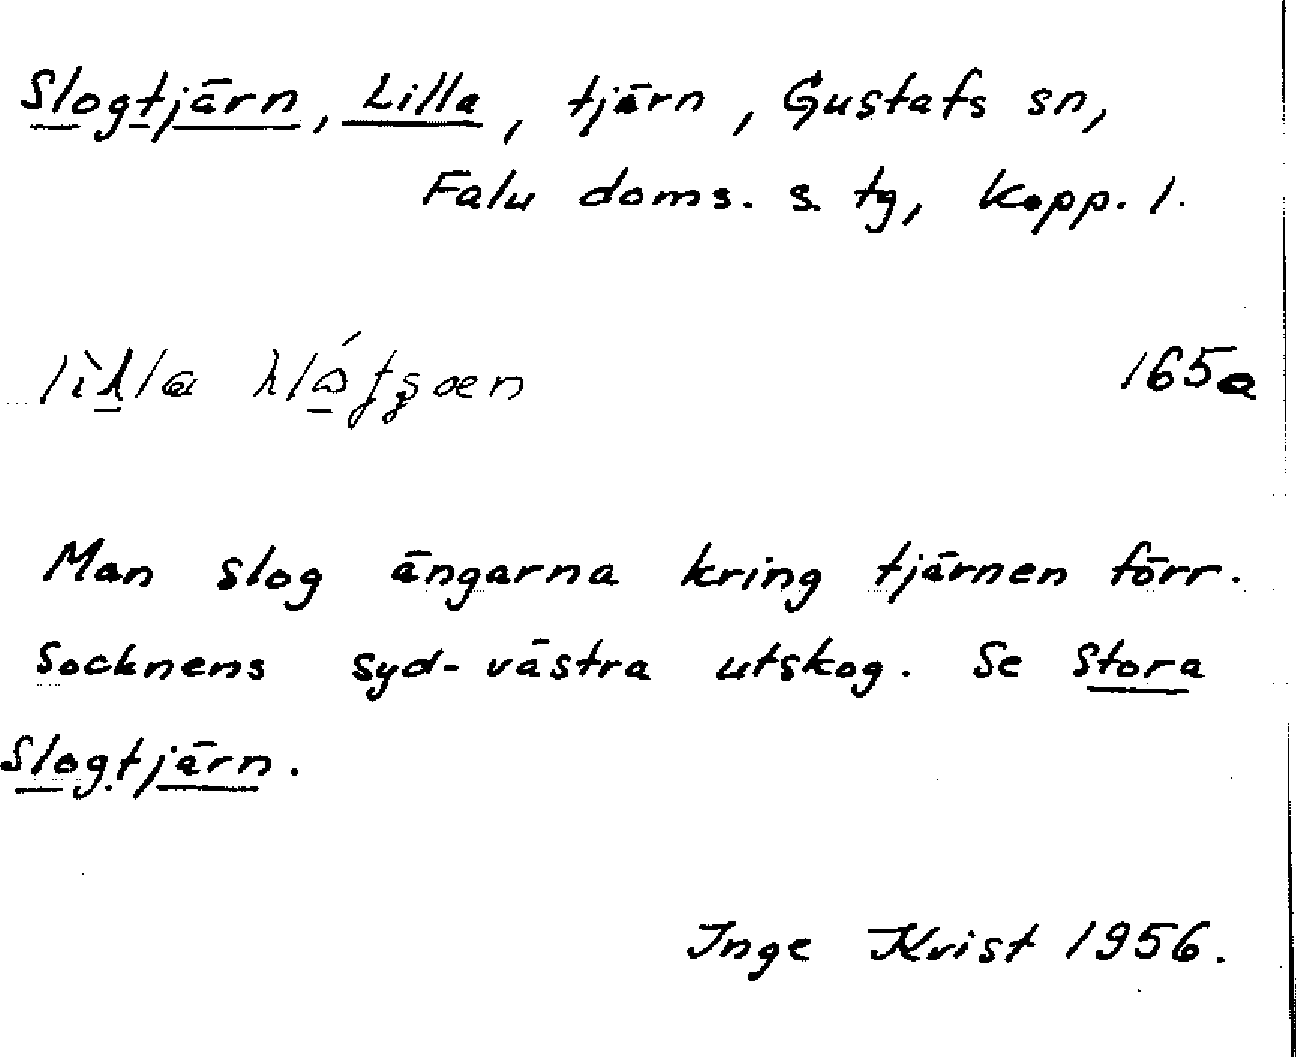 Slogtjärn, Lilla, tjärn, Gustafs sn,
Falu doms. s. tg, Kopp. l.
165a
Man slog ängarna kring tjärnen förr.
Socknens syd-västra utskog. Se Stora
Slogtjärn.
Inge Kvist 1956.